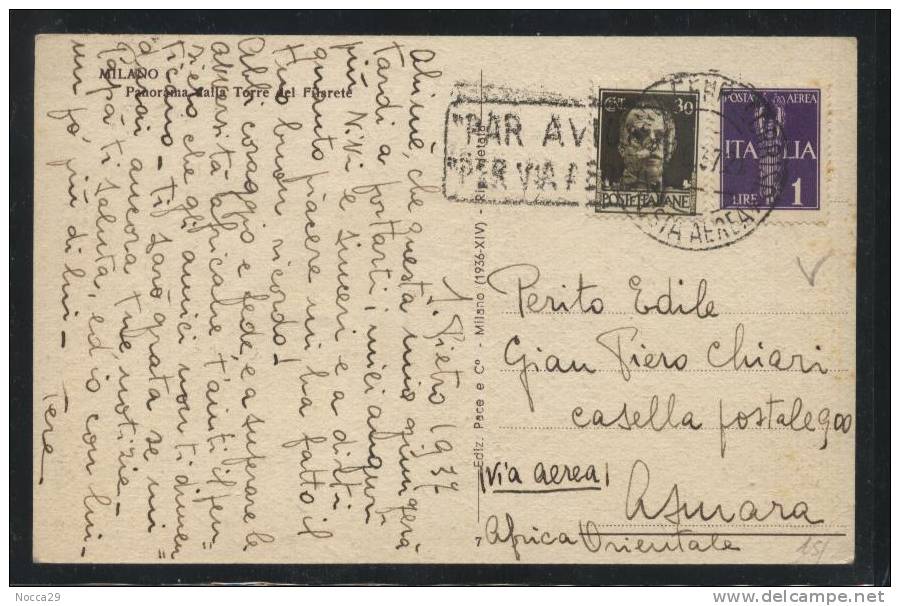 MILANO
Panorama dalla Torre del Filarete
S. Pietro 1937
Ahimè, che questa mia giungerà
tardi a portarti i miei auguri
più vivi e sinceri e a dirti
quanto piacere mi ha fatto il
tuo buon ricordo!
Abbi coraggio e fede, e a superare le
avversità africane t'aiuti il pen=
siero che gli amici non ti dimen
ticano - Ti sarò grata se mi
darai ancora tue notizie -
Papà ti saluta, ed io con lui -
un po' più di lui -
Tera
7 Ediz. Pace e Cº - Milano (1936-XIV) - Rip. vietata
"PAR AV
"PER VIA AE
CENT 30
POSTE ITALIANE
POSTA AEREA
ITALIA
LIRE 1
37
POSTA AEREA
Perito Edile
Gian Piero Chiari
Casella postale 900
(Via aerea)
Asmara
Africa Orientale
15/
Nocca29
www.delcampe.net